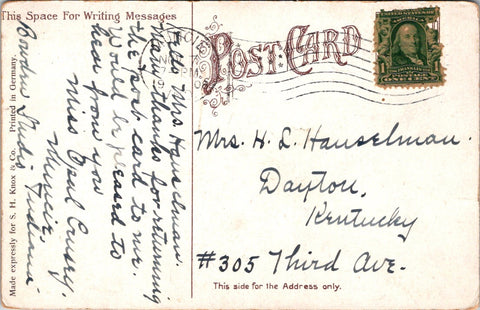 This Space For Writing Messages
POST CARD
Hello Mrs Hauselman.
Many thanks for returning
the post card to me.
Would be pleased to
hear from you
Miss Opal
Muncie,
Indiana
Mrs. H. L. Hauselman.
Dayton,
Kentucky
#305 Third Ave.
This side for the Address only.
Made expressly for S. H. Knox & Co. Printed in Germany.